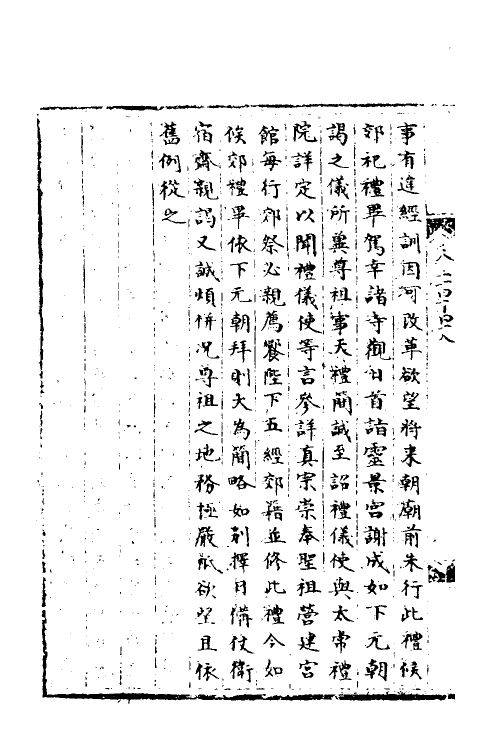 事有違經訓因何改革欲望將来朝廟前未行此禮候
郊祀禮畢駕幸諸寺觀日首詣靈景宫謝成如下元朝
謁之儀所兾尊祖事天禮簡誠至詔禮儀使與太常禮
院詳定以聞禮儀使等言參詳真宗崇奉聖祖營建宫
館每行郊祭必親薦饗陛下五經郊籍並修此禮今如
候郊禮畢依下元朝拜則大為簡略如别擇日備仗衛
宿齋親謁又誠煩併况尊祖之地務極嚴祇欲望且依
舊例從之